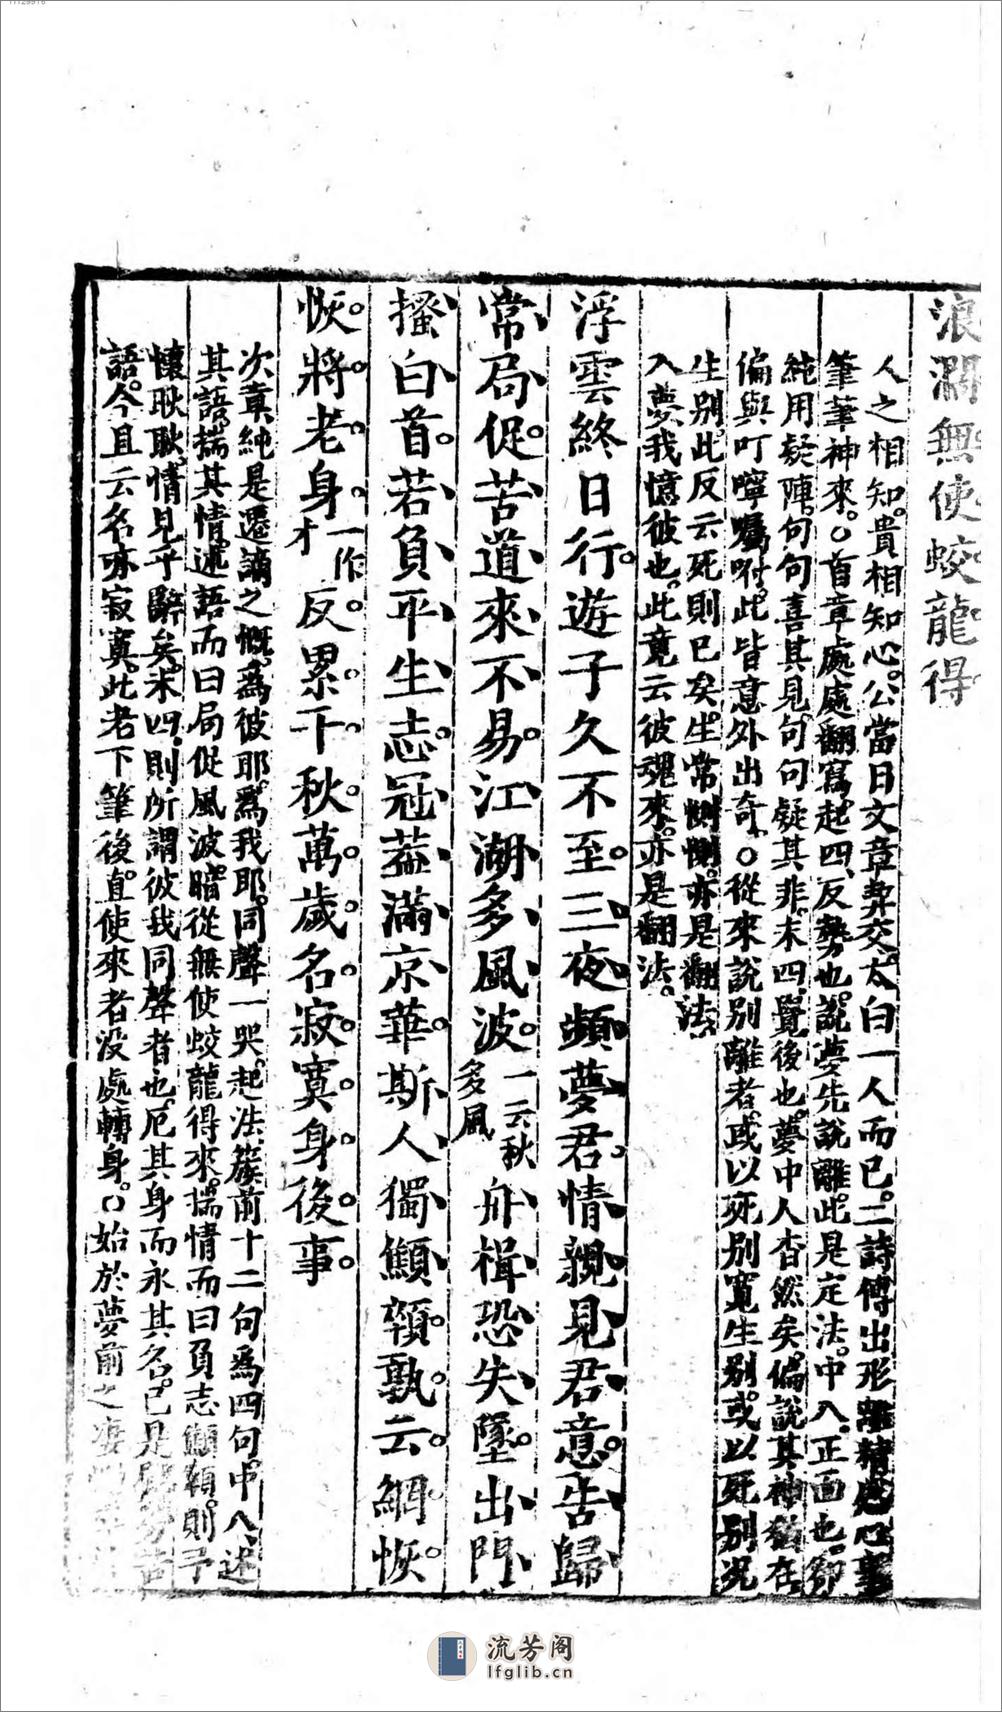 浪濶無使蛟龍得
人之相知。貴相知心。公當日文章契交。太白一人而已。二詩傳出形離精感心事
筆筆神來。○首章處處翻寫。起四、反勢也。說夢先說離。此是定法。中八、正面也。却
純用疑陣。句句喜其見。句句疑其非。末四、覺後也。夢中人杳然矣。偏說其神猶在。
偏與叮嚀囑咐。此皆意外出奇。○從來說別離者。或以死別寬生別。或以死別況
生別。此反云死則已矣。生常惻惻。亦是翻法。
入夢我憶彼也。此竟云彼魂來。亦是翻法。
浮雲終日行。遊子久不至。三夜頻夢君。情親見君意。告歸
常局促。苦道來不易。江湖多風波。一云秋多風舟楫恐失墜。出門
搔白首。若負平生志。冠蓋滿京華。斯人獨顦顇。孰云網恢
恢。將老身。一作才反累。千秋萬歲名。寂寞身後事。
次章純是遷謫之慨。為彼耶。為我耶。同聲一哭。起法。簇前十二句為四句。中八、述
其語。揣其情。述語而曰局促風波。暗從無使蛟龍得來。揣情而曰負志顦顇。則予
懷耿耿。情見乎辭矣。末四、則所謂彼我同聲者也。厄其身而永其名。已是
語。今且云名亦寂寞。此老下筆後。直使來者沒處轉身。○始於夢前之凄